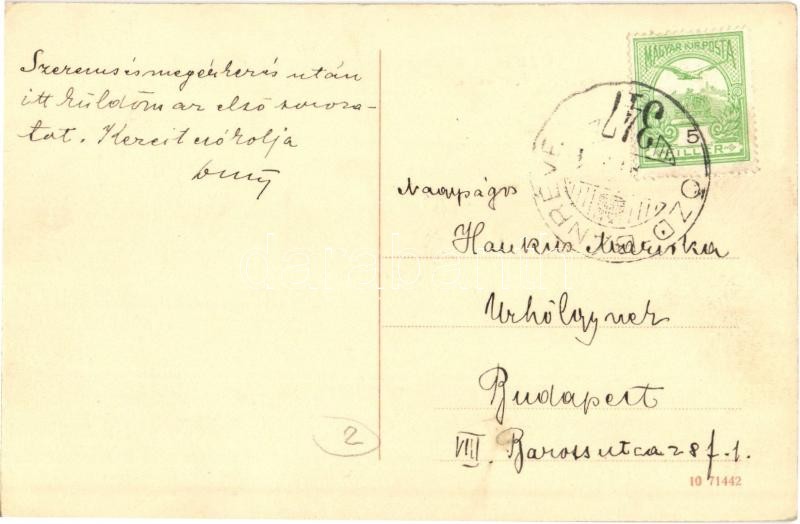 Szerencsés megérkezés után
itt küldöm az első soroza-
tot. Kezeit csókolja
MAGYAR KIR. POSTA
5
FILLÉR
ÓZD BÁNRÉVE
347
Nagyságos
Hankus Mariska
Urhölgynek
Budapest
VIII. Baross utca 28 f. 1.
10 71442
2